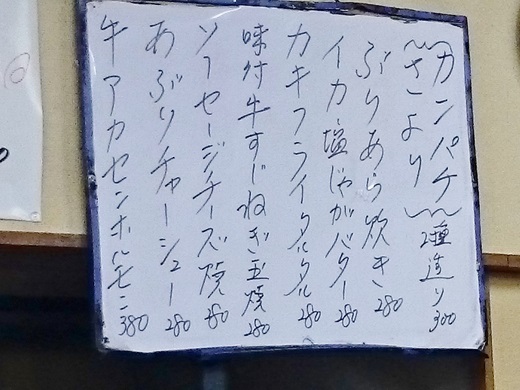 カンパチ
さより
2種造り 300
ぶりあら炊き 280
イカ塩じゃがバター 280
カキフライタルタル 280
味付牛すじねぎ玉焼 280
ソーセージチーズ焼 280
あぶりチャーシュー 280
牛アカセンホルモン 380